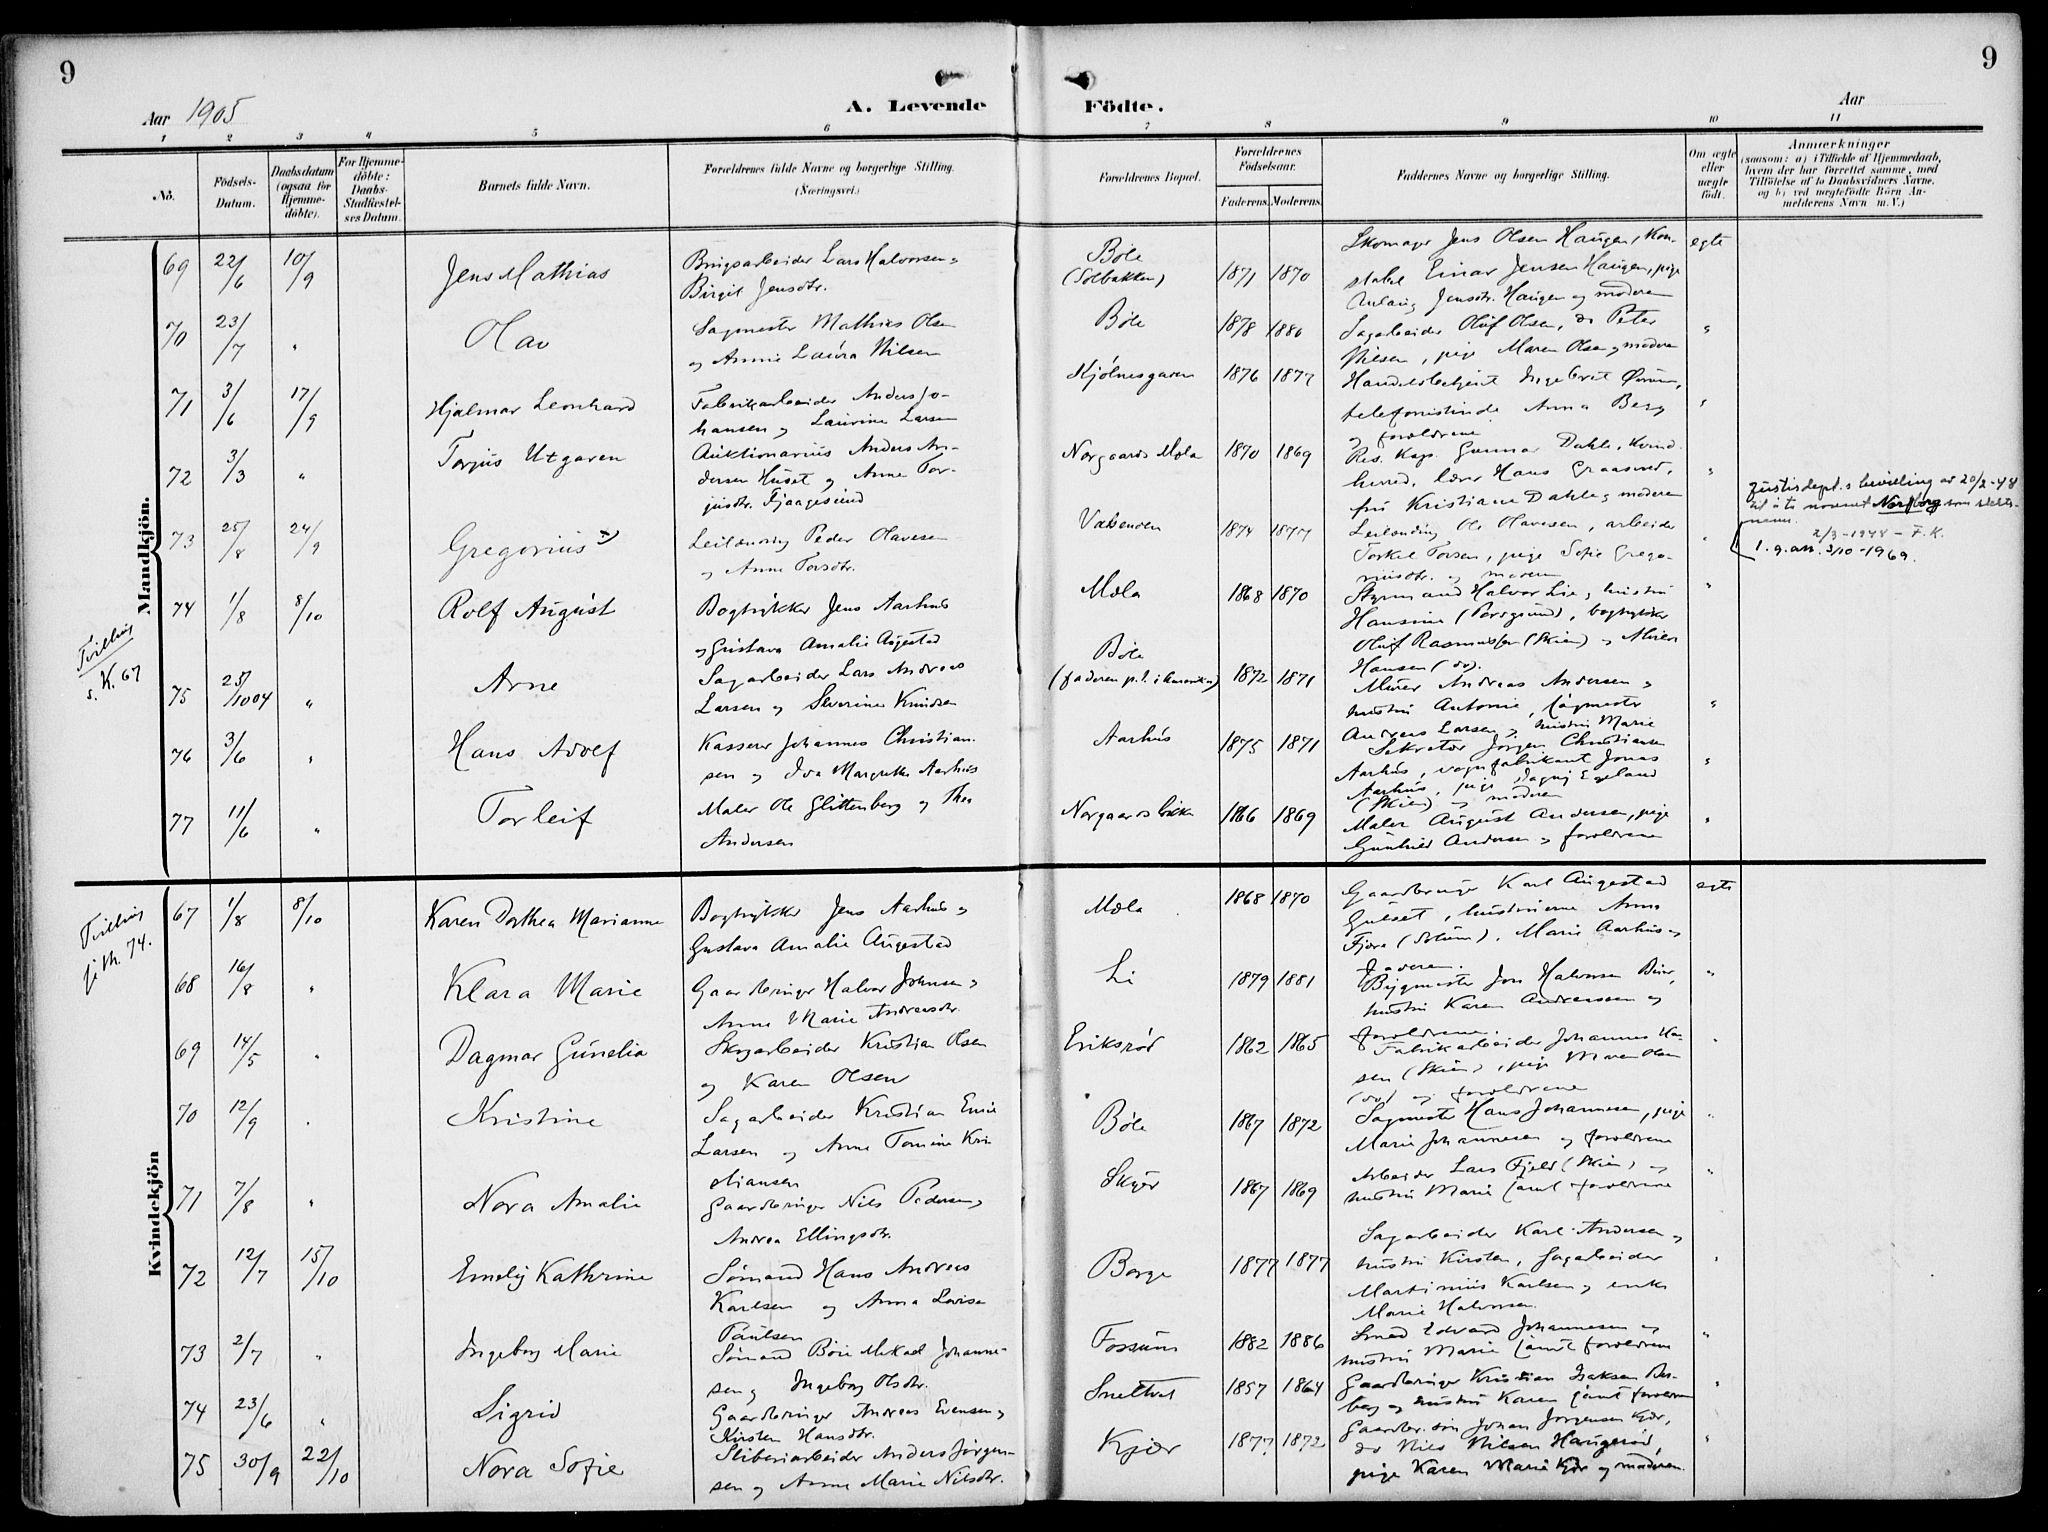 9
9
Aar 1905
A. Levende
Födte.
Aar
1 2 3 4 5 6 7 8 9 10 11
No.
Födsels-Datum.
Daabsdatum (ogsaa for Hjemmedöbte).
For Hjemmedöbte: Daabs-Stadfæstelses Datum.
Barnets fulde Navn.
Forældrenes fulde Navne og borgerlige Stilling.
(Næringsvei.)
Forældrenes Bopæl.
Forældrenes Födselsaar.
Faderens. Moderens.
Faddernes Navne og borgerlige Stilling.
Om ægte eller uægte födt.
Anmærkninger
(saasom: a) i Tilfælde af Hjemmedaab, hvem der har forrettet samme, med Tilföielse af to Daabsvidners Navne, og b) ved uægtefödte Börn Anmelderens Navn m. V.)
Mandkjön.
69 22/6 10/9 Jens Mathias
Brugsarbeider Lars Halvorsen og
Birgit Jensdtr.
Böle
(Solbakken)
1871 1870
Skomager Jens Olsen Haugen, Kon-
stabel Einar Jensen Haugen, pige
Jensdtr. Haugen og moderen
egte
70 23/7 " Olav
Sagmester Mathias Olsen
og Annie Laura Nilsen
Böle
1878 1880
Sagarbeider Oluf Olsen, do Peter
Nilsen, pige Maren Olsen og moderen
"
71 3/6 17/9 Hjalmar Leonhard
Fabrikarbeider Anders Jo-
hansen og Laurine Larsen
Mjölnesgaren
1876 1877
Handelsbetjent Ingebret
telefonistinde Anna Berg
og forældrene
"
72 3/3 " Torjus Utgaren
Auktionarius Anders An-
dersen Huset og Anne Tor-
jusdtr. Fjaagesund
Norgaards Mæla
1870 1869
Res. Kap. Gunnar Dahle, Kvind-
herred, lærer Hans Graasved,
fru Kristiane Dahle og moderen
"
73 25/8 24/9 Gregorius x)
Leilænding Peder Olavesen
og Anne Torsdtr.
1874 1877
Leilænding Ole Olavesen, arbeider
Torkel Torsen, pige Sofie Grego-
riusdtr. og moderen
"
Justisdept.s bevilling av 20/2-48
til å ta navnet Norfborg som slekts-
navn.
2/3-1948 - F.K.
I.g. an. 3/10-1969.
74 1/8 8/10 Rolf August
Tvilling
s. K. 67
Bogtrykker Jens Aarhus
og Gustava Amalie Augestad
Mæla
1868 1870
Styrmand Halvor Lie, hustru
Hansine (Porsgrund), bogtrykker
Oluf Rasmussen (Skien) og
Hansen (do).
"
75 25/10 04 " Arne
Sagarbeider Lars Andreas
Larsen og Severine Knudsen
Böle
(faderen p.t. i Amerika)
1872 1871
Murer Andreas Andersen og
hustru Antonie, sagmester
Andreas Larsen og hustru Marie
"
76 3/6 " Hans Adolf
Kasserer Johannes Christian-
sen og Ida Margrethe Aarhus
Aarhus
1875 1871
Sekretær Jörgen Christiansen
Aarhus, vognfabrikant Jonas
Aarhus, pige Dagny Egeland
(Skien) og moderen
"
77 11/6 " Torleif
Maler Ole Glittenberg og Thea
Andersen
Norgaardsløkka
1866 1869
Maler August Andersen, pige
Gunhild Andersen og forældrene
"
Kvindekjön
Tvilling
jf. M. 74.
67 1/8 8/10 Karen Dorthea Marianne
Bogtrykker Jens Aarhus og
Gustava Amalie Augestad
Mæla
1868 1870
Gaardbruger Karl Augestad
Gulset, hustruerne Anna
Fjære (Solum), Marie Aarhus og
faderen.
egte
68 16/8 " Klara Marie
Gaardbruger Halvor Johnsen og
Anne Marie Andreasdtr.
Li
1879 1881
Bygmester Jon Halvorsen
hustru Karen Andreassen og
forældrene.
"
69 14/5 " Dagmar Gunelia
Skogarbeider Kristian Olsen
og Karen Olsen
Eriksröd
1862 1865
Fabrikarbeider Johannes Han-
sen (Skien), pige Maren Olsen
(do) og forældrene
"
70 12/9 " Kristine
Sagarbeider Kristian Emil
Larsen og Anne Tomine Kri-
stiansen
Böle
1867 1872
Sagmester Hans Johannesen, pige
Marie Johannesen og forældrene
"
71 7/8 " Nora Amalie
Gaardbruger Nils Pedersen og
Andrea Ellingsdtr.
Skyer
1867 1869
Arbeider Lars Fjeld (Skien) og
hustru Marie samt forældrene
"
72 12/7 15/10 Emely Kathrine
Sömand Hans Andreas
Karlsen og Anna Lovise
Paulsen
Borge
1877 1877
Sagarbeider Karl Andersen og
hustru Kirsten, sagarbeider
Martinius Karlsen og enke
Marie Halvorsen.
"
73 2/7 " Ingeborg Marie
Sömand Böie Mikael Johanne-
sen og Ingeborg Olsdtr.
Fossum
1882 1886
Smed Edvard Johannesen og
hustru Marie samt forældrene
"
74 23/6 " Sigrid
Gaardbruger Andreas Evensen og
Kirsten Hansdtr.
Sneltvet
1857 1864
Gaardbruger Kristian Isaksen Bes-
berg og hustru Karen samt forældrene
"
75 30/9 22/10 Nora Sofie
Sliberiarbeider Anders Jörgen-
sen og Anne Marie Nilsdtr.
Kjær
1877 1872
Gaardbr. sön Johan Jörgensen Kjær,
do Nils Nilsen Haugeröd,
pige Karen Marie Kjær og moderen.
"